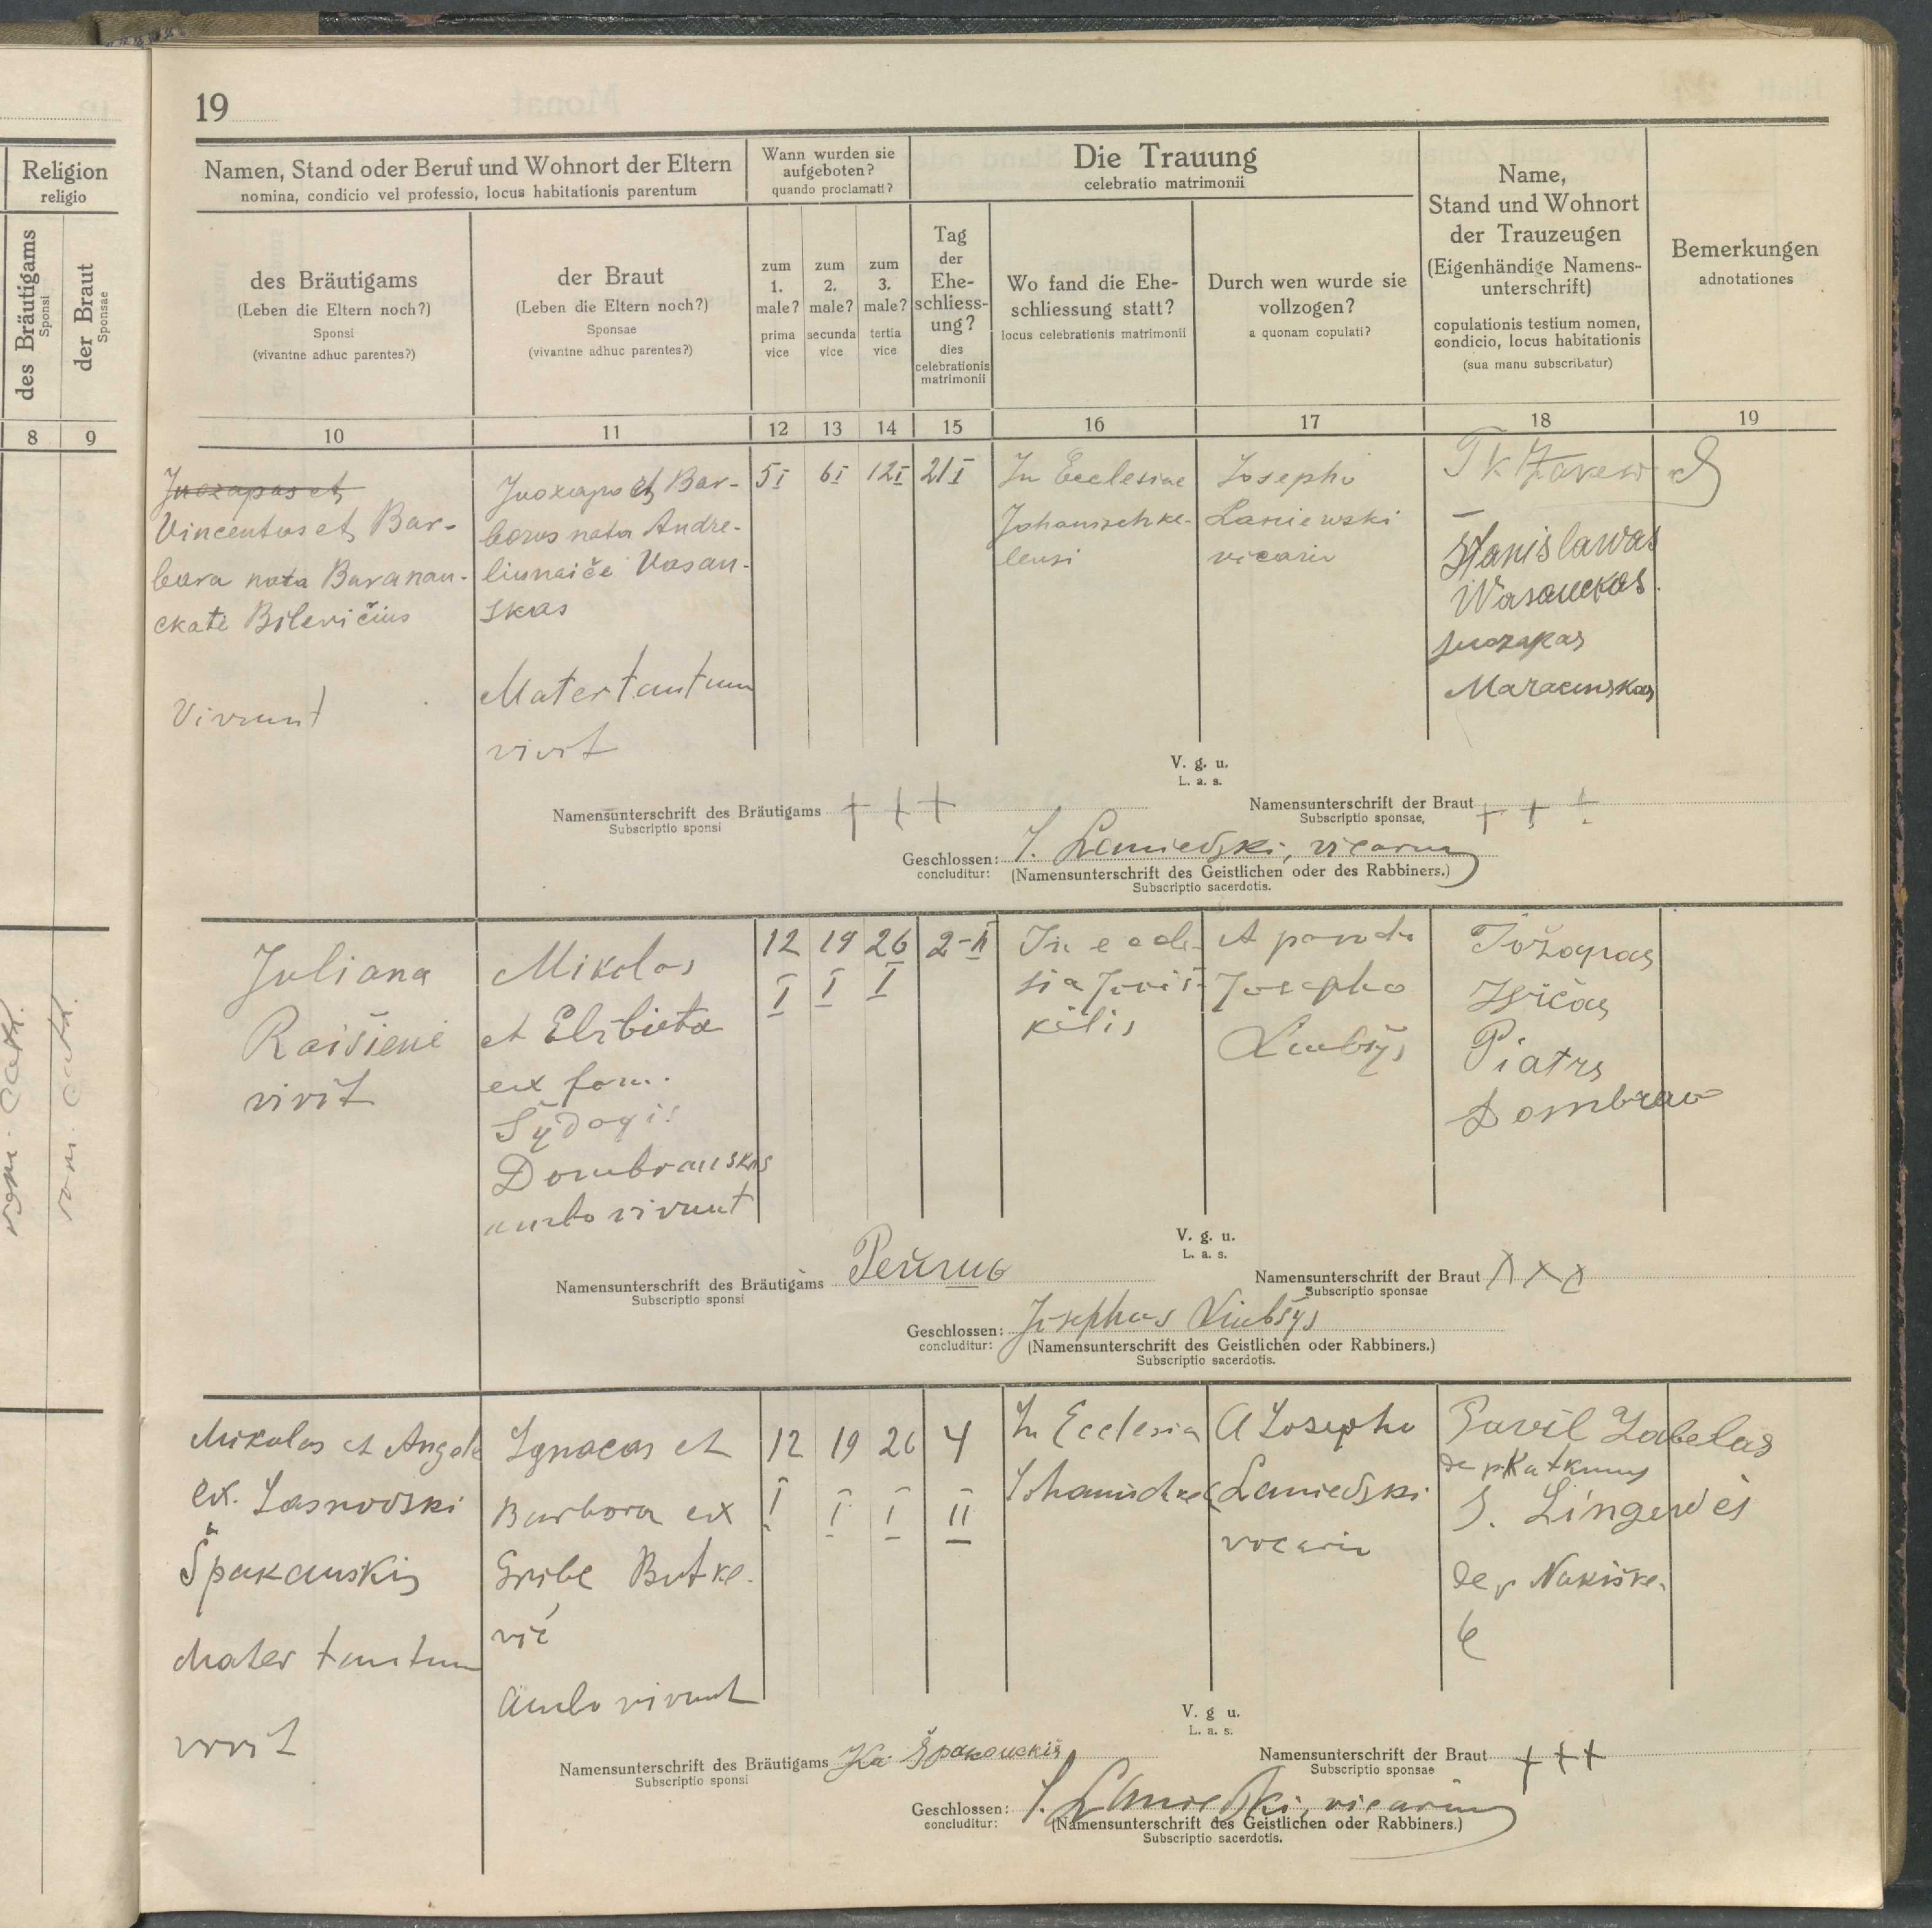 19
Religion
religio
des Bräutigams
Sponsi
der Braut
Sponsae
8
9
Namen, Stand oder Beruf und Wohnort der Eltern
nomina, condicio vel professio, locus habitationis parentum
des Bräutigams
(Leben die Eltern noch?)
Sponsi
(vivantne adhuc parentes?)
der Braut
(Leben die Eltern noch?)
Sponsae
(vivantne adhuc parentes?)
Wann wurden sie
aufgeboten?
quando proclamati?
zum
1.
male?
prima
vice
zum
2.
male?
secunda
vice
zum
3.
male?
tertia
vice
Die Trauung
celebratio matrimonii
Tag
der
Ehe-
schliess-
ung?
dies
celebrationis
matrimonii
Wo fand die Ehe-
schliessung statt?
locus celebrationis matrimonii
Durch wen wurde sie
vollzogen?
a quonam copulati?
Name,
Stand und Wohnort
der Trauzeugen
(Eigenhändige Namens-
unterschrift)
copulationis testium nomen,
condicio, locus habitationis
(sua manu subscribatur)
Bemerkungen
adnotationes
10
11
12
13
14
15
16
17
18
19
Juozapas et
Vincentus et Bar-
bara nata Baranau-
ckatė Bilevičius
Vivunt
Juozapo et Bar-
boros nata Andre-
liunaičė Vasau-
skas
Mater tantum
vivit
5 I
6 I
12 I
21 I
In Ecclesiae
Johanischke-
lensi
Josepho
Laniewski
vicario
Stanislawas
Wasauckas.
Juozapas
V. g. u.
L. a. s.
Namensunterschrift des Bräutigams + + +
Subscriptio sponsi
Namensunterschrift der Braut + + +
Subscriptio sponsae,
Geschlossen: J. Laniewski, vicarius
concluditur:
(Namensunterschrift des Geistlichen oder des Rabbiners.)
Subscriptio sacerdotis.
Juliana
Raišienė
vivit
Mikolas
et Elzbieta
ex fam.
Dombrauskas
ambo vivunt
12
I
19
I
26
I
2-II
In eccle-
sia Joniš-
kėlis
Josepho
Liubšys
Piatrs
Dombrau
V. g. u.
L. a. s.
Namensunterschrift des Bräutigams
Subscriptio sponsi
Namensunterschrift der Braut X X X
Subscriptio sponsae
Geschlossen: Josephus Liubšys
concluditur:
(Namensunterschrift des Geistlichen oder Rabbiners.)
Subscriptio sacerdotis.
Mikolas et Angela
ex. Lasnovski
Špakauskis
Mater tantum
vivit
Ignacas et
Barbora ex
Butke-
vič
ambo vivunt
12
I
19
I
26
I
4
II
In Ecclesia
A Josepho
Laniewski
vicario
Pavil Zabelas
S. Lingewės
V. g u.
L. a. s.
Namensunterschrift des Bräutigams Ka. Špakauckis
Subscriptio sponsi
Namensunterschrift der Braut + + +
Subscriptio sponsae
Geschlossen: J. Laniewski, vicarius
concluditur:
(Namensunterschrift des Geistlichen oder Rabbiners.)
Subscriptio sacerdotis.